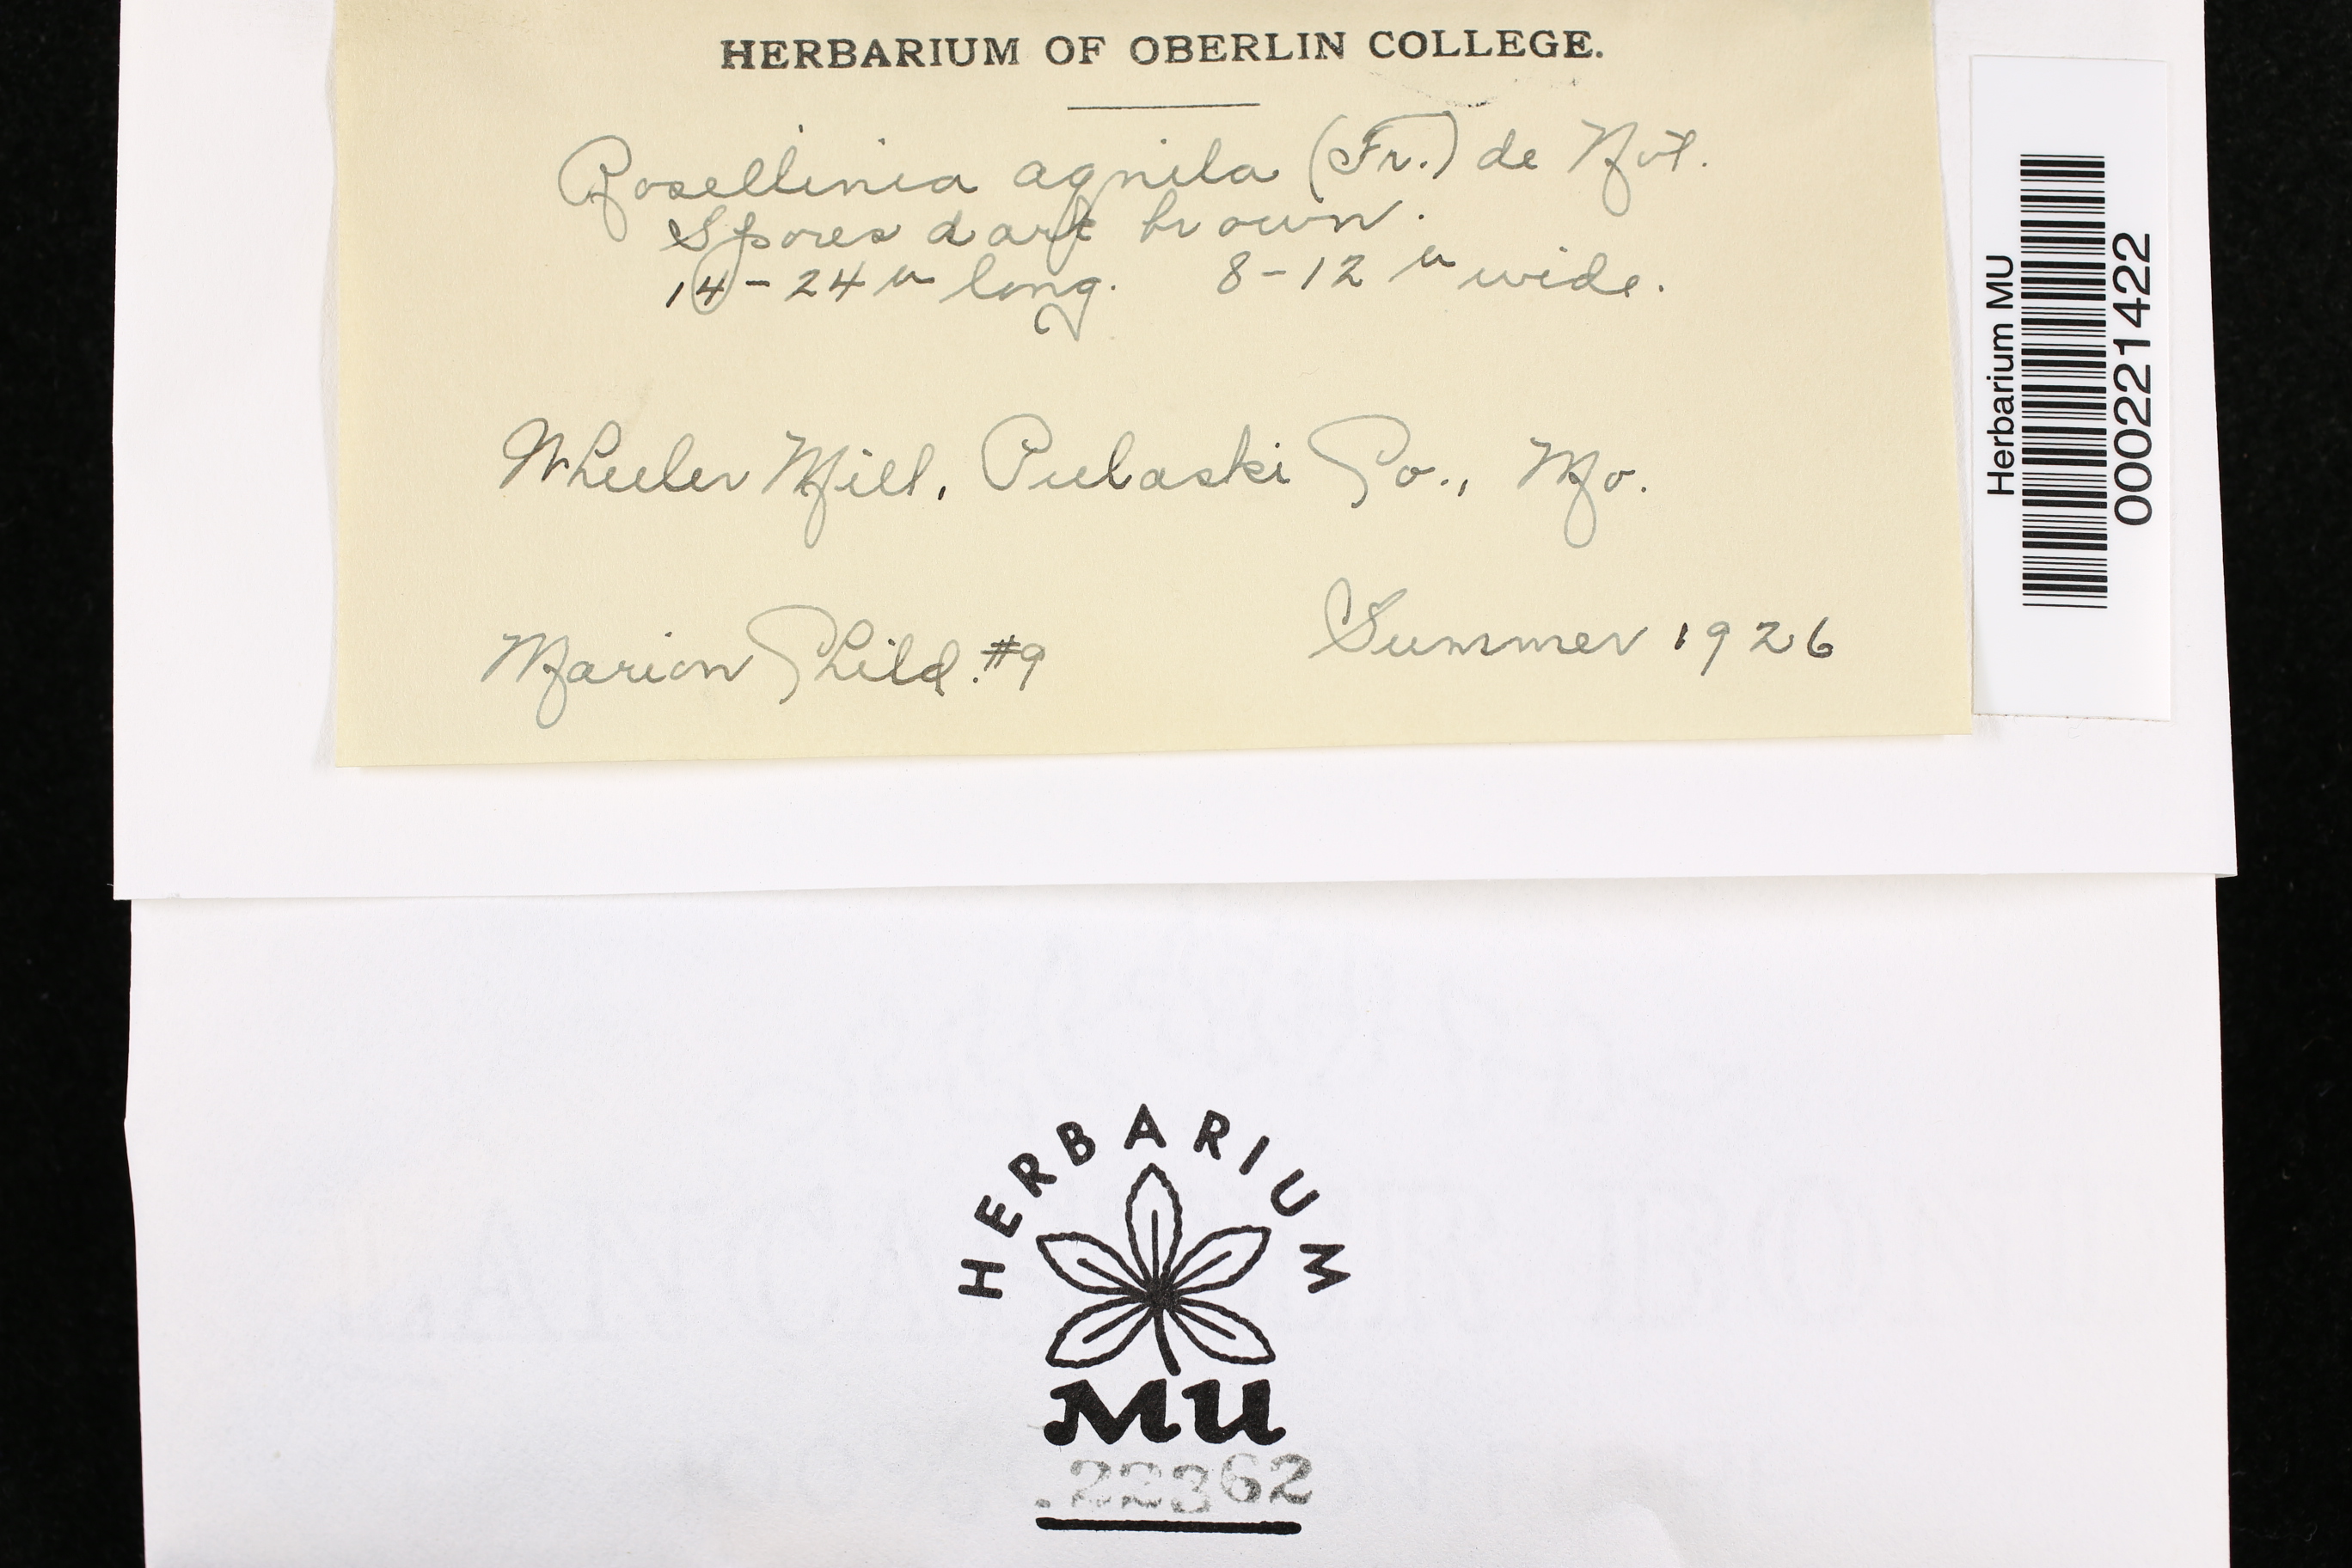 HERBARIUM OF OBERLIN COLLEGE.
Rosellinia aqnila (Fr.) de Not.
Spores dark brown.
14-24 u long. 8-12 u wide.
Wheeler Mill, Pulaski Co., Mo.
Marion Child. #9 Summer 1926
Herbarium MU
000221422
HERBARIUM
MU
22362